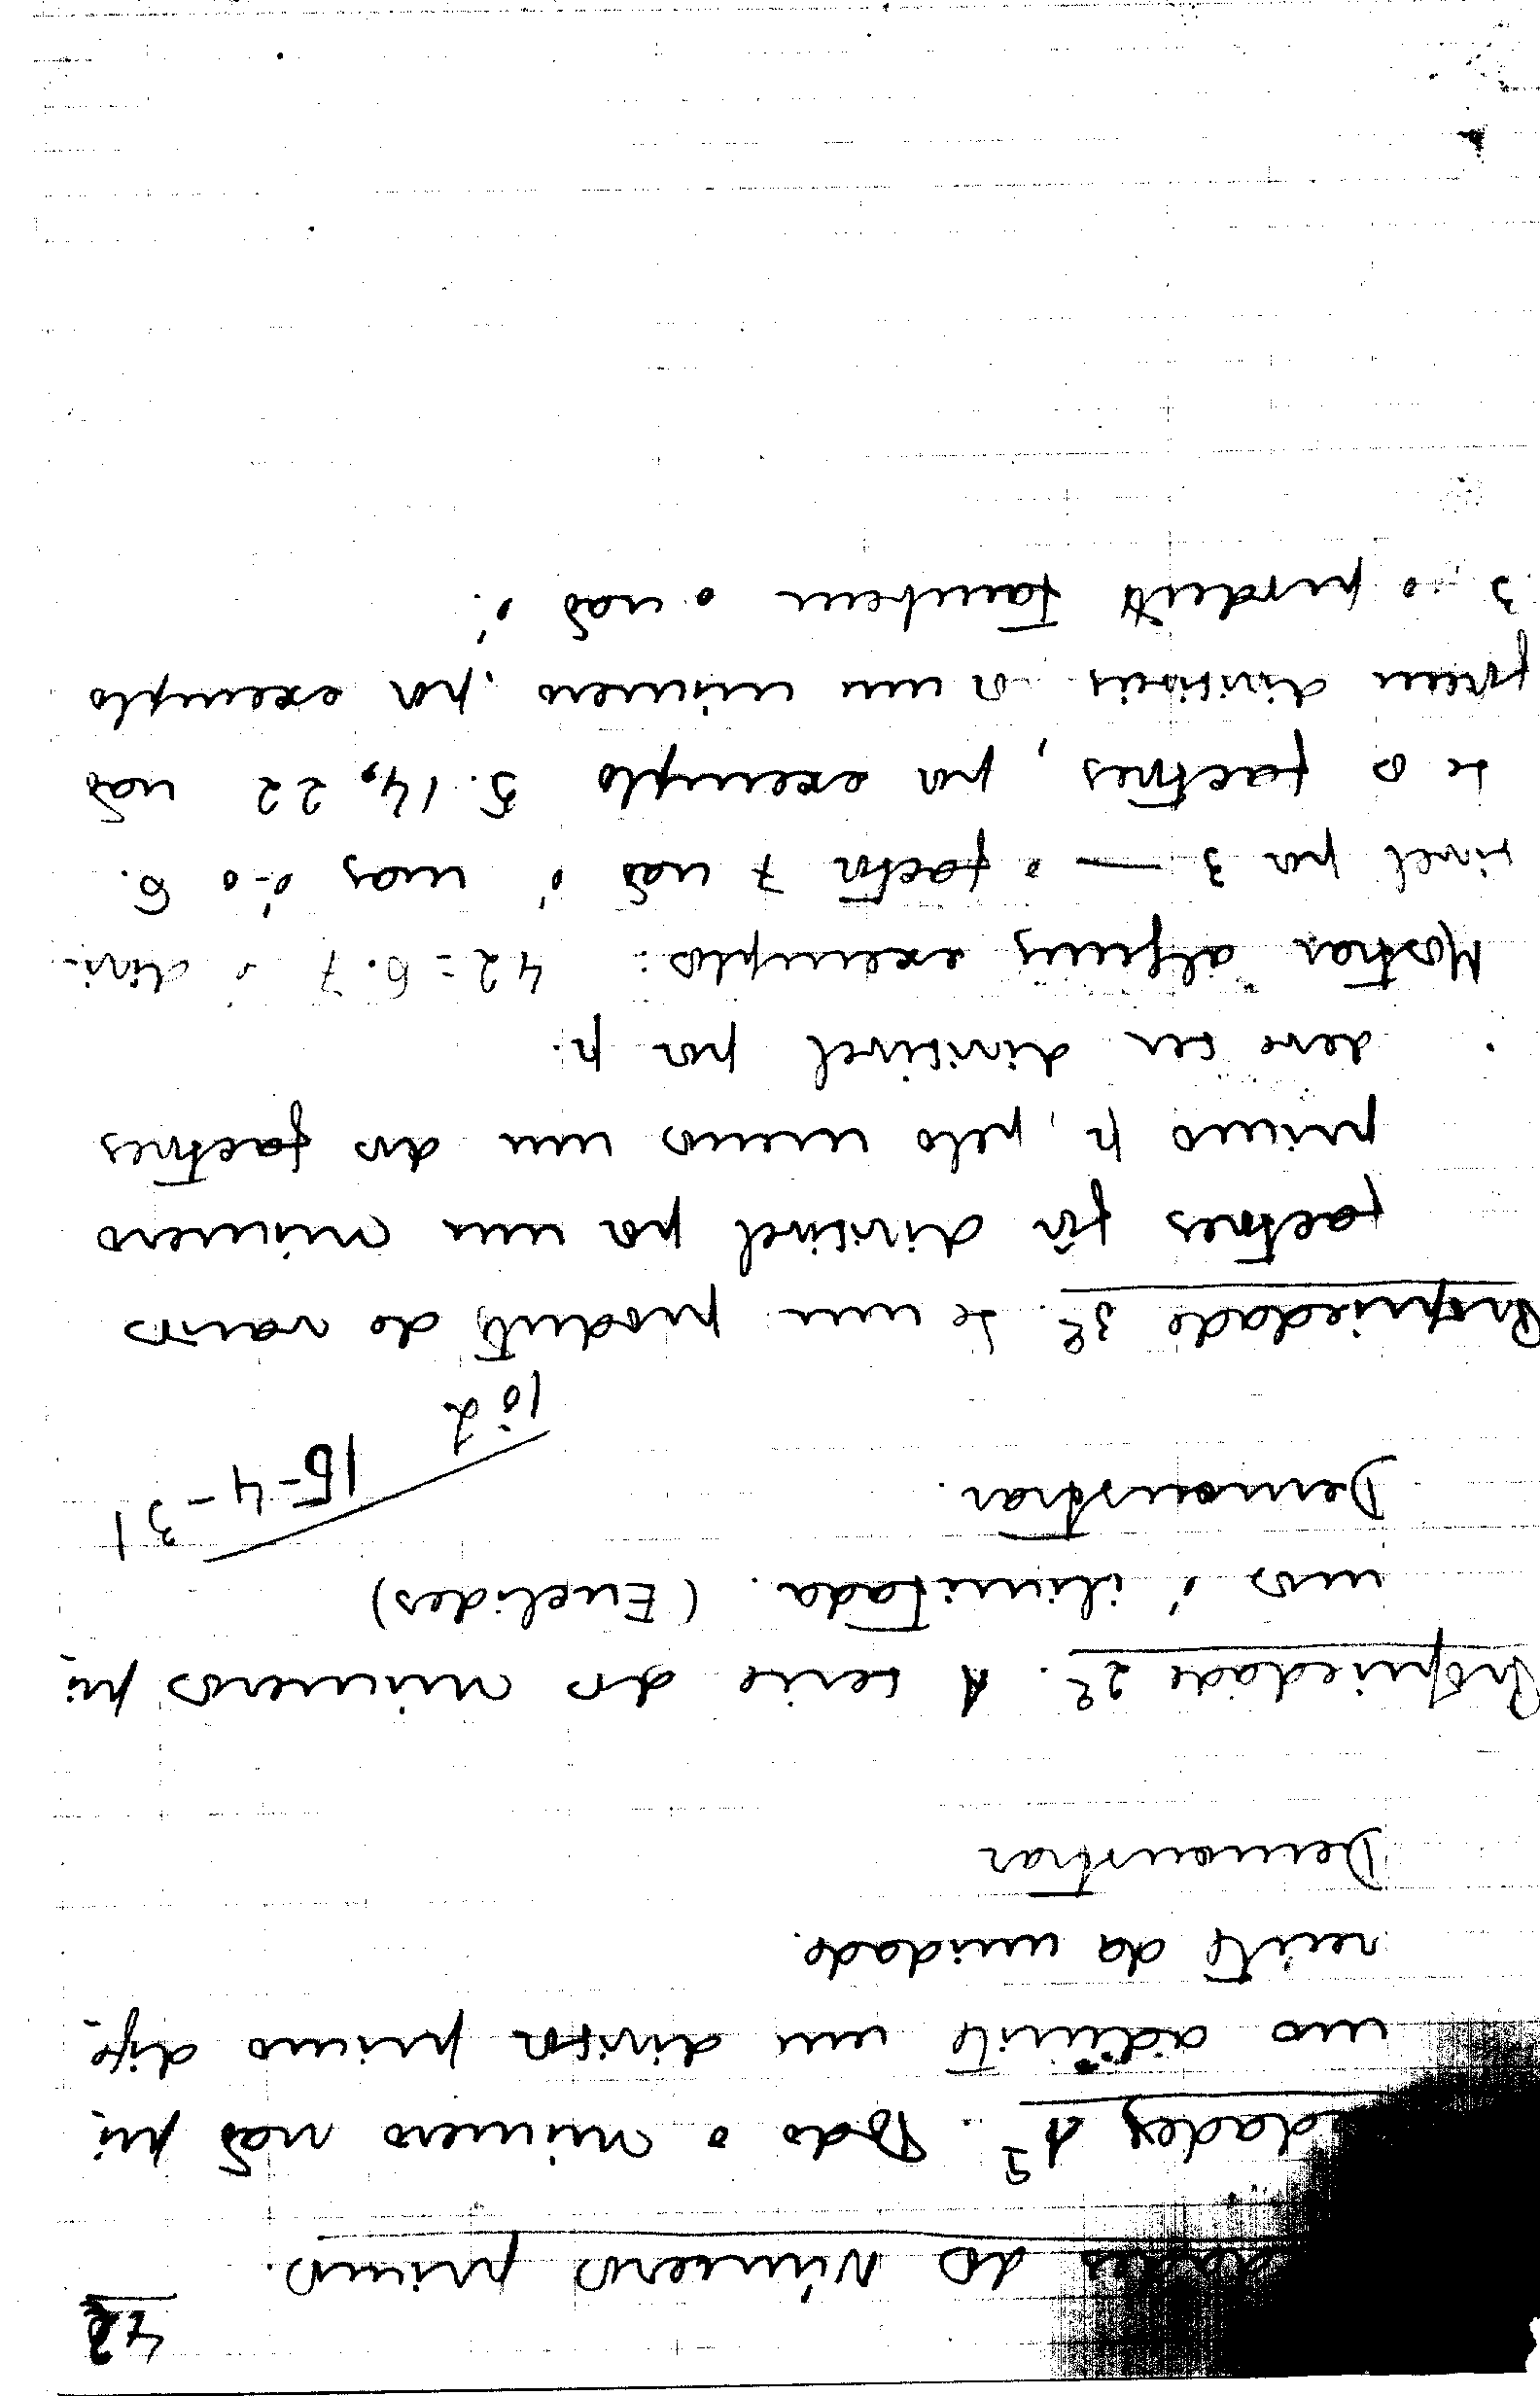 42
dades do Números primos.
dades 1ª. Todo o número não pri-
mo admite um divisor primo dife-
rente da unidade.
Demonstrar
Propriedade 2ª. A serie dos números pri-
mos é ilimitada. (Euclides)
Demonstrar.
15-4-31
Propriedade 3ª. Se um producto de varios
factores fôr divisivel por um número
primo p, pelo menos um dos factores
deve ser divisivel por p.
Mostrar alguns exemplos: 42 = 6.7 é divi-
sivel por 3 — o factor 7 não é mas é-o 6.
Se os factores, por exemplo 5. 14, 22 não
forem divisiveis por um número por exemplo
3 o producto tambem o não é.